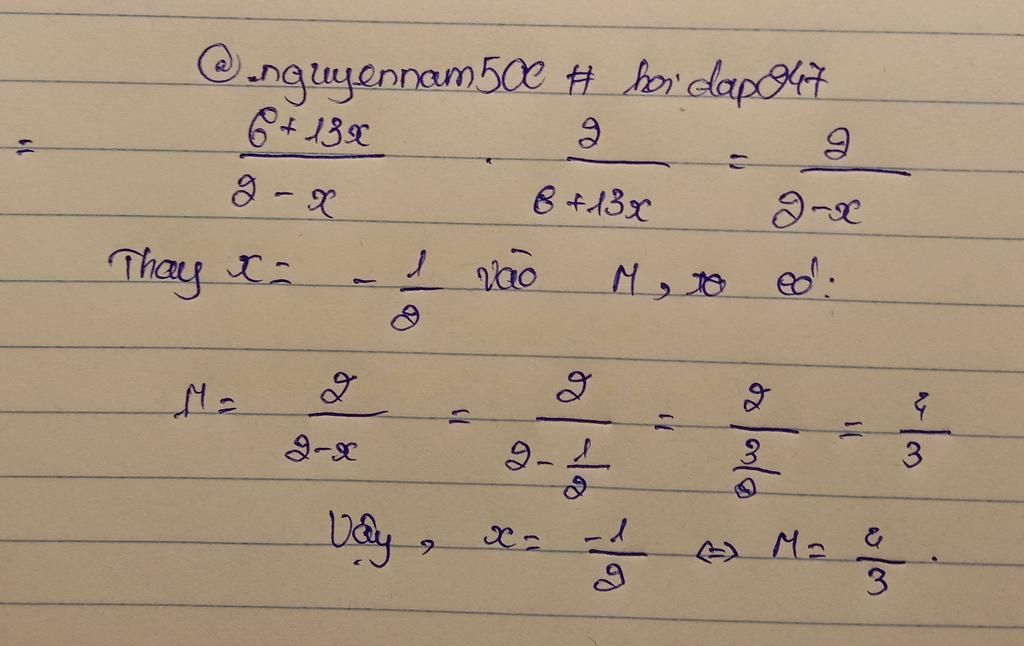 @.nguyennam500 # hoidap247
= (6+13x)/(2-x) . 2/(6+13x) = 2/(2-x)
Thay x = -1/2 vào M, có:
M = 2/(2-x) = 2/(2-1/2) = 2/(3/2) = 4/3
Vậy, x = -1/2 <=> M = 4/3.